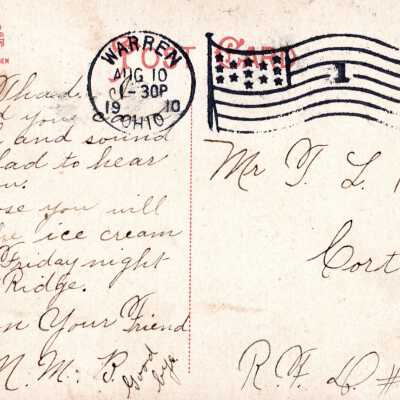 POST CARD
WARREN
AUG 10
1-30P
19 10
OHIO
1
Thad.
d you
and sound
lad to hear
ou.
ose you will
he ice cream
Friday night
Ridge.
on Your Friend
M. M. B.
Good
bye
Mr T. L
Cort
R. F. D. #